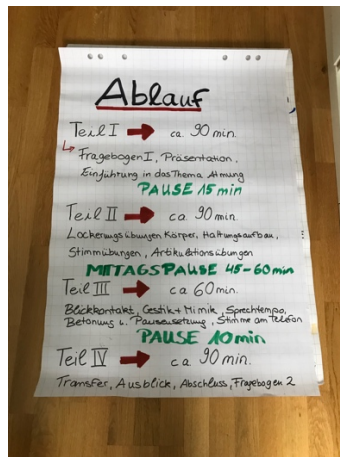 Ablauf
Teil I → ca. 90 min.
↳ Fragebogen I, Präsentation,
Einführung in das Thema Atmung
PAUSE 15 min
Teil II → ca. 90 min.
Lockerungsübungen Körper, Haltungsaufbau,
Stimmübungen, Artikulationsübungen
MITTAGSPAUSE 45-60 min
Teil III → ca. 60 min.
Blickkontakt, Gestik + Mimik, Sprechtempo,
Betonung u. Pausensetzung, Stimme am Telefon
PAUSE 10 min
Teil IV → ca. 90 min.
Transfer, Ausblick, Abschluss, Fragebogen 2